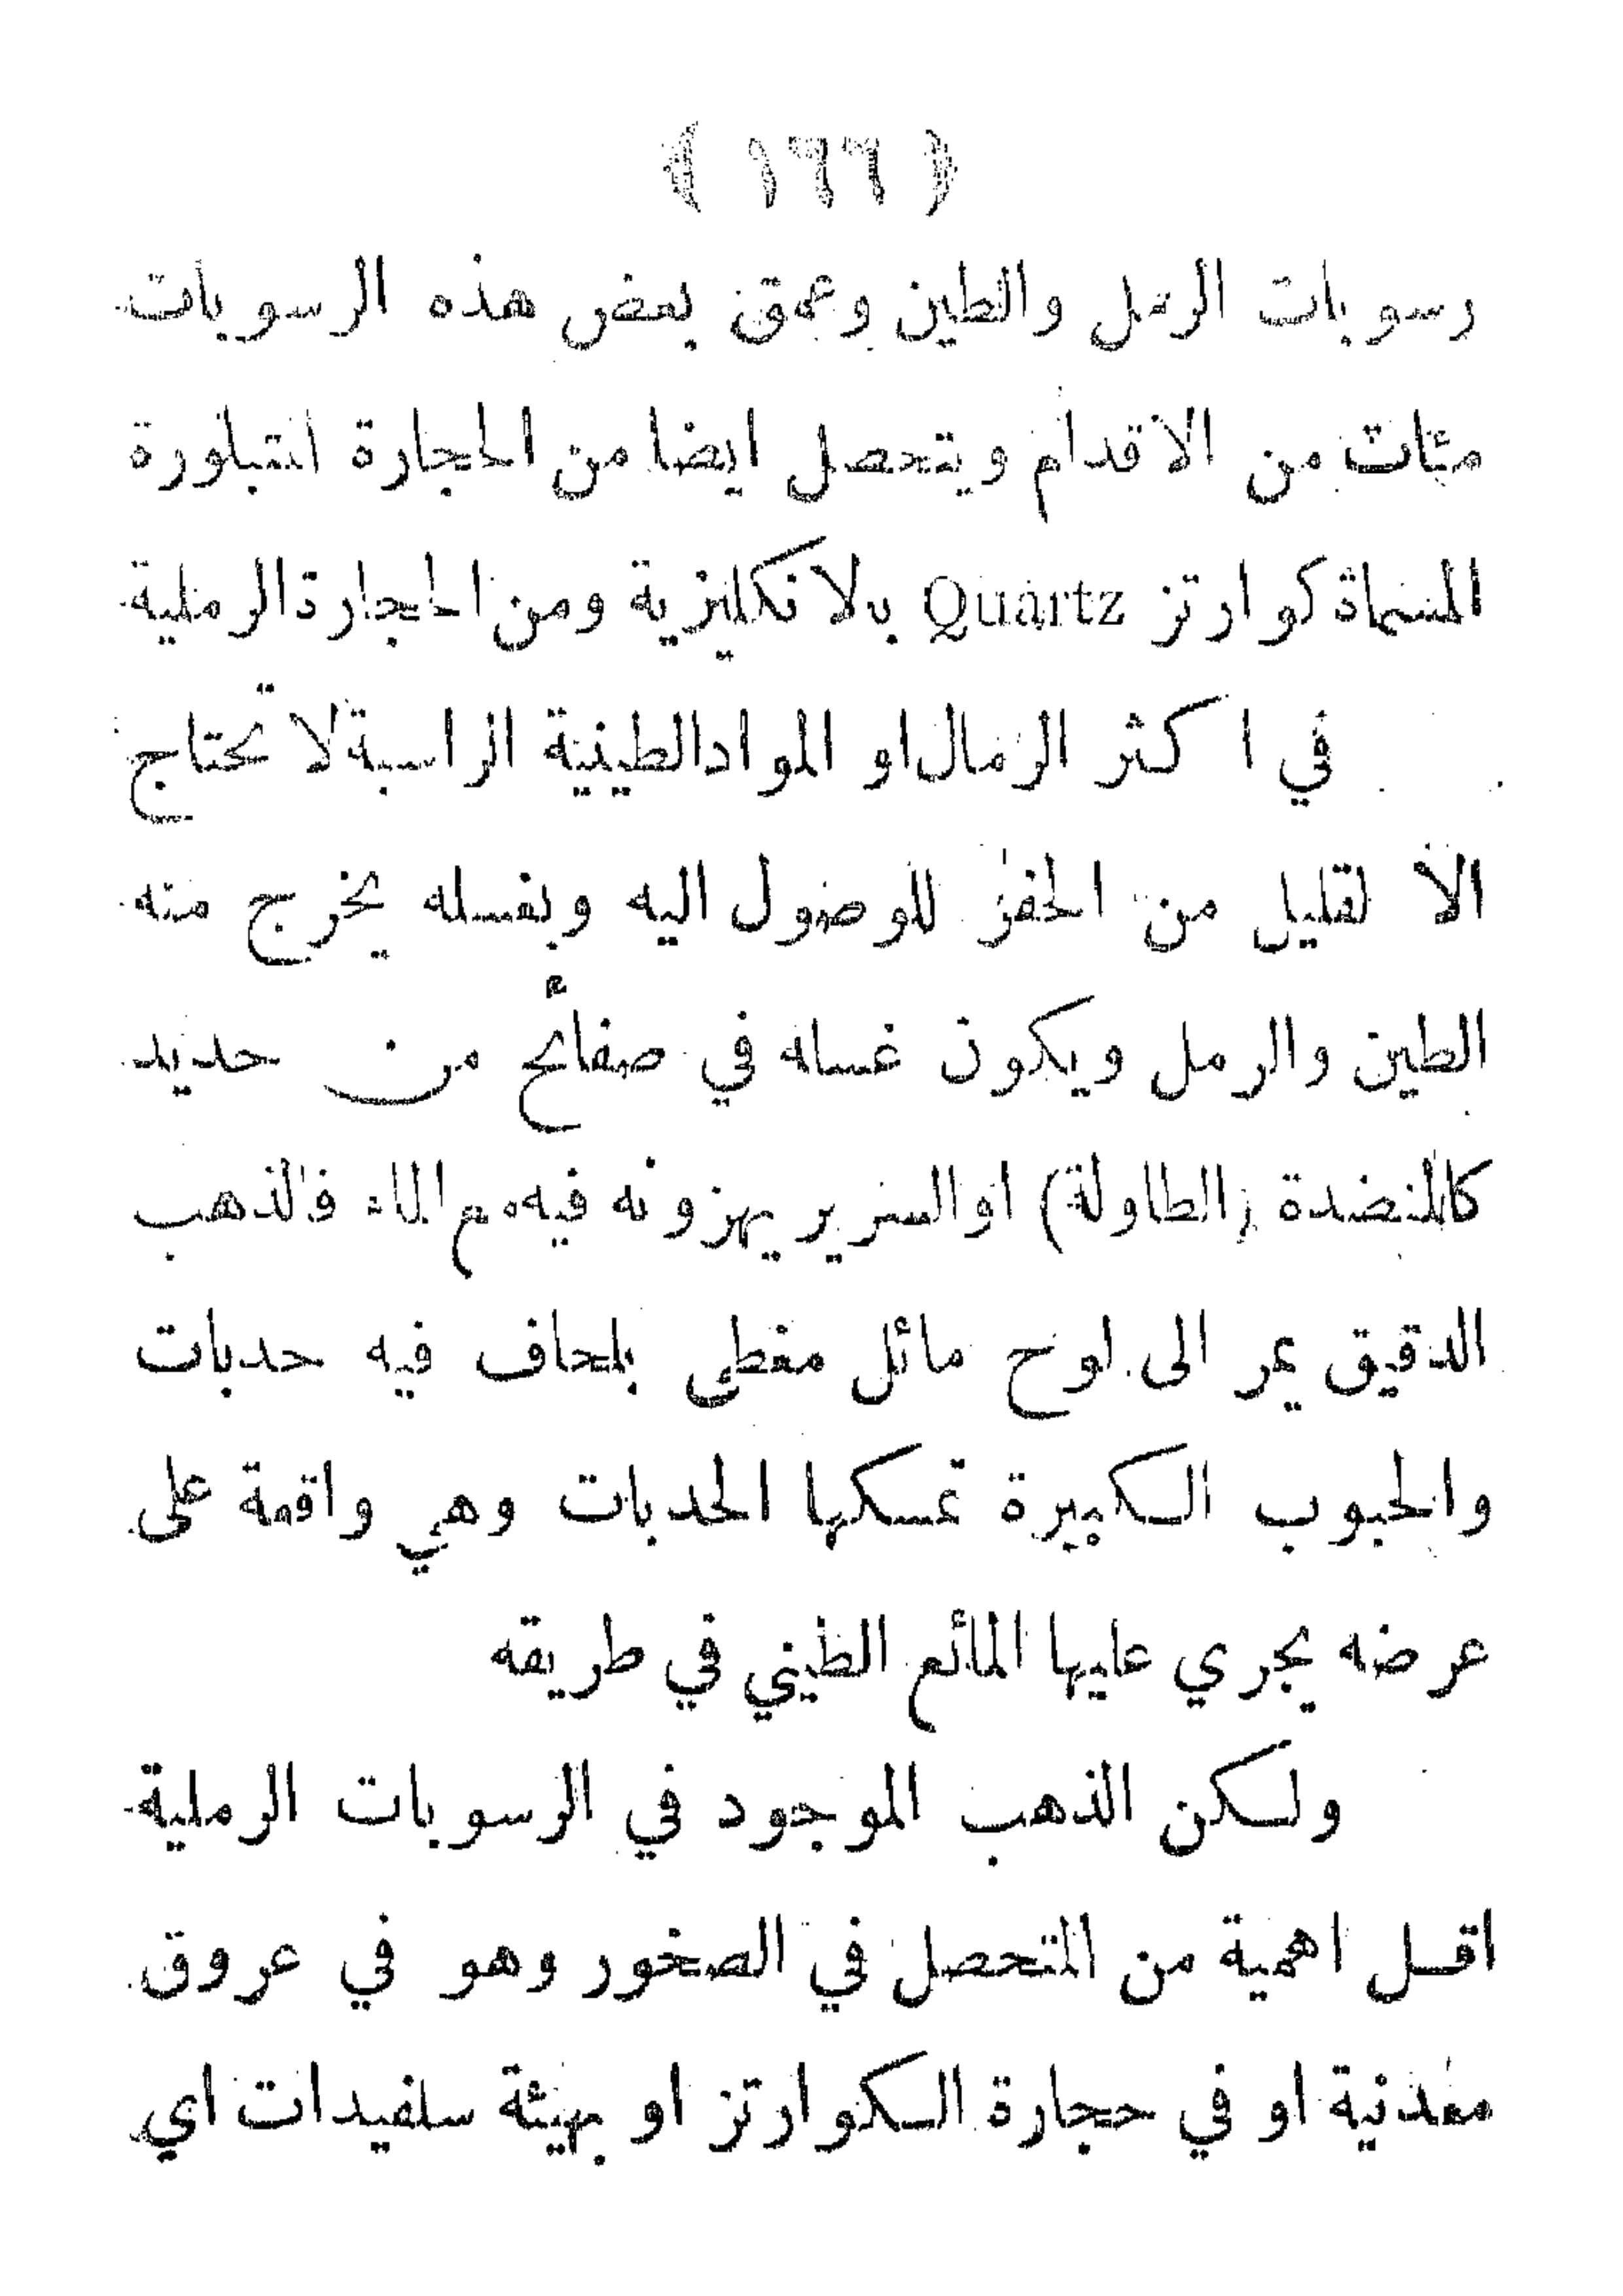 ( ١٦٦ )
رسوبات الرمل والطين وعمق بعض هذه الرسوبات
مئات من الاقدام ويتحصل ايضا من الحجارة المتبلورة
المسماة كوارتز Quartz بالانكليزية ومن الحجارة الرملية
في اكثر الرمال او المواد الطينية الراسبة لا تحتاج
الا لقليل من الحفر للوصول اليه وبغسله يخرج منه
الطين والرمل ويكون غسله في صفائح من حديد
كالمنضدة (الطاولة) او السرير يهزونه فيه مع الماء فالذهب
الدقيق يمر الى لوح مائل مغطى بلحاف فيه حدبات
والحبوب الكبيرة تمسكها الحدبات وهي واقعة على
عرضه يجري عليها المائع الطيني في طريقه
ولكن الذهب الموجود في الرسوبات الرملية
اقل اهمية من المتحصل في الصخور وهو في عروق
معدنية او في حجارة الكوارتز او بهيئة سلفيدات اي